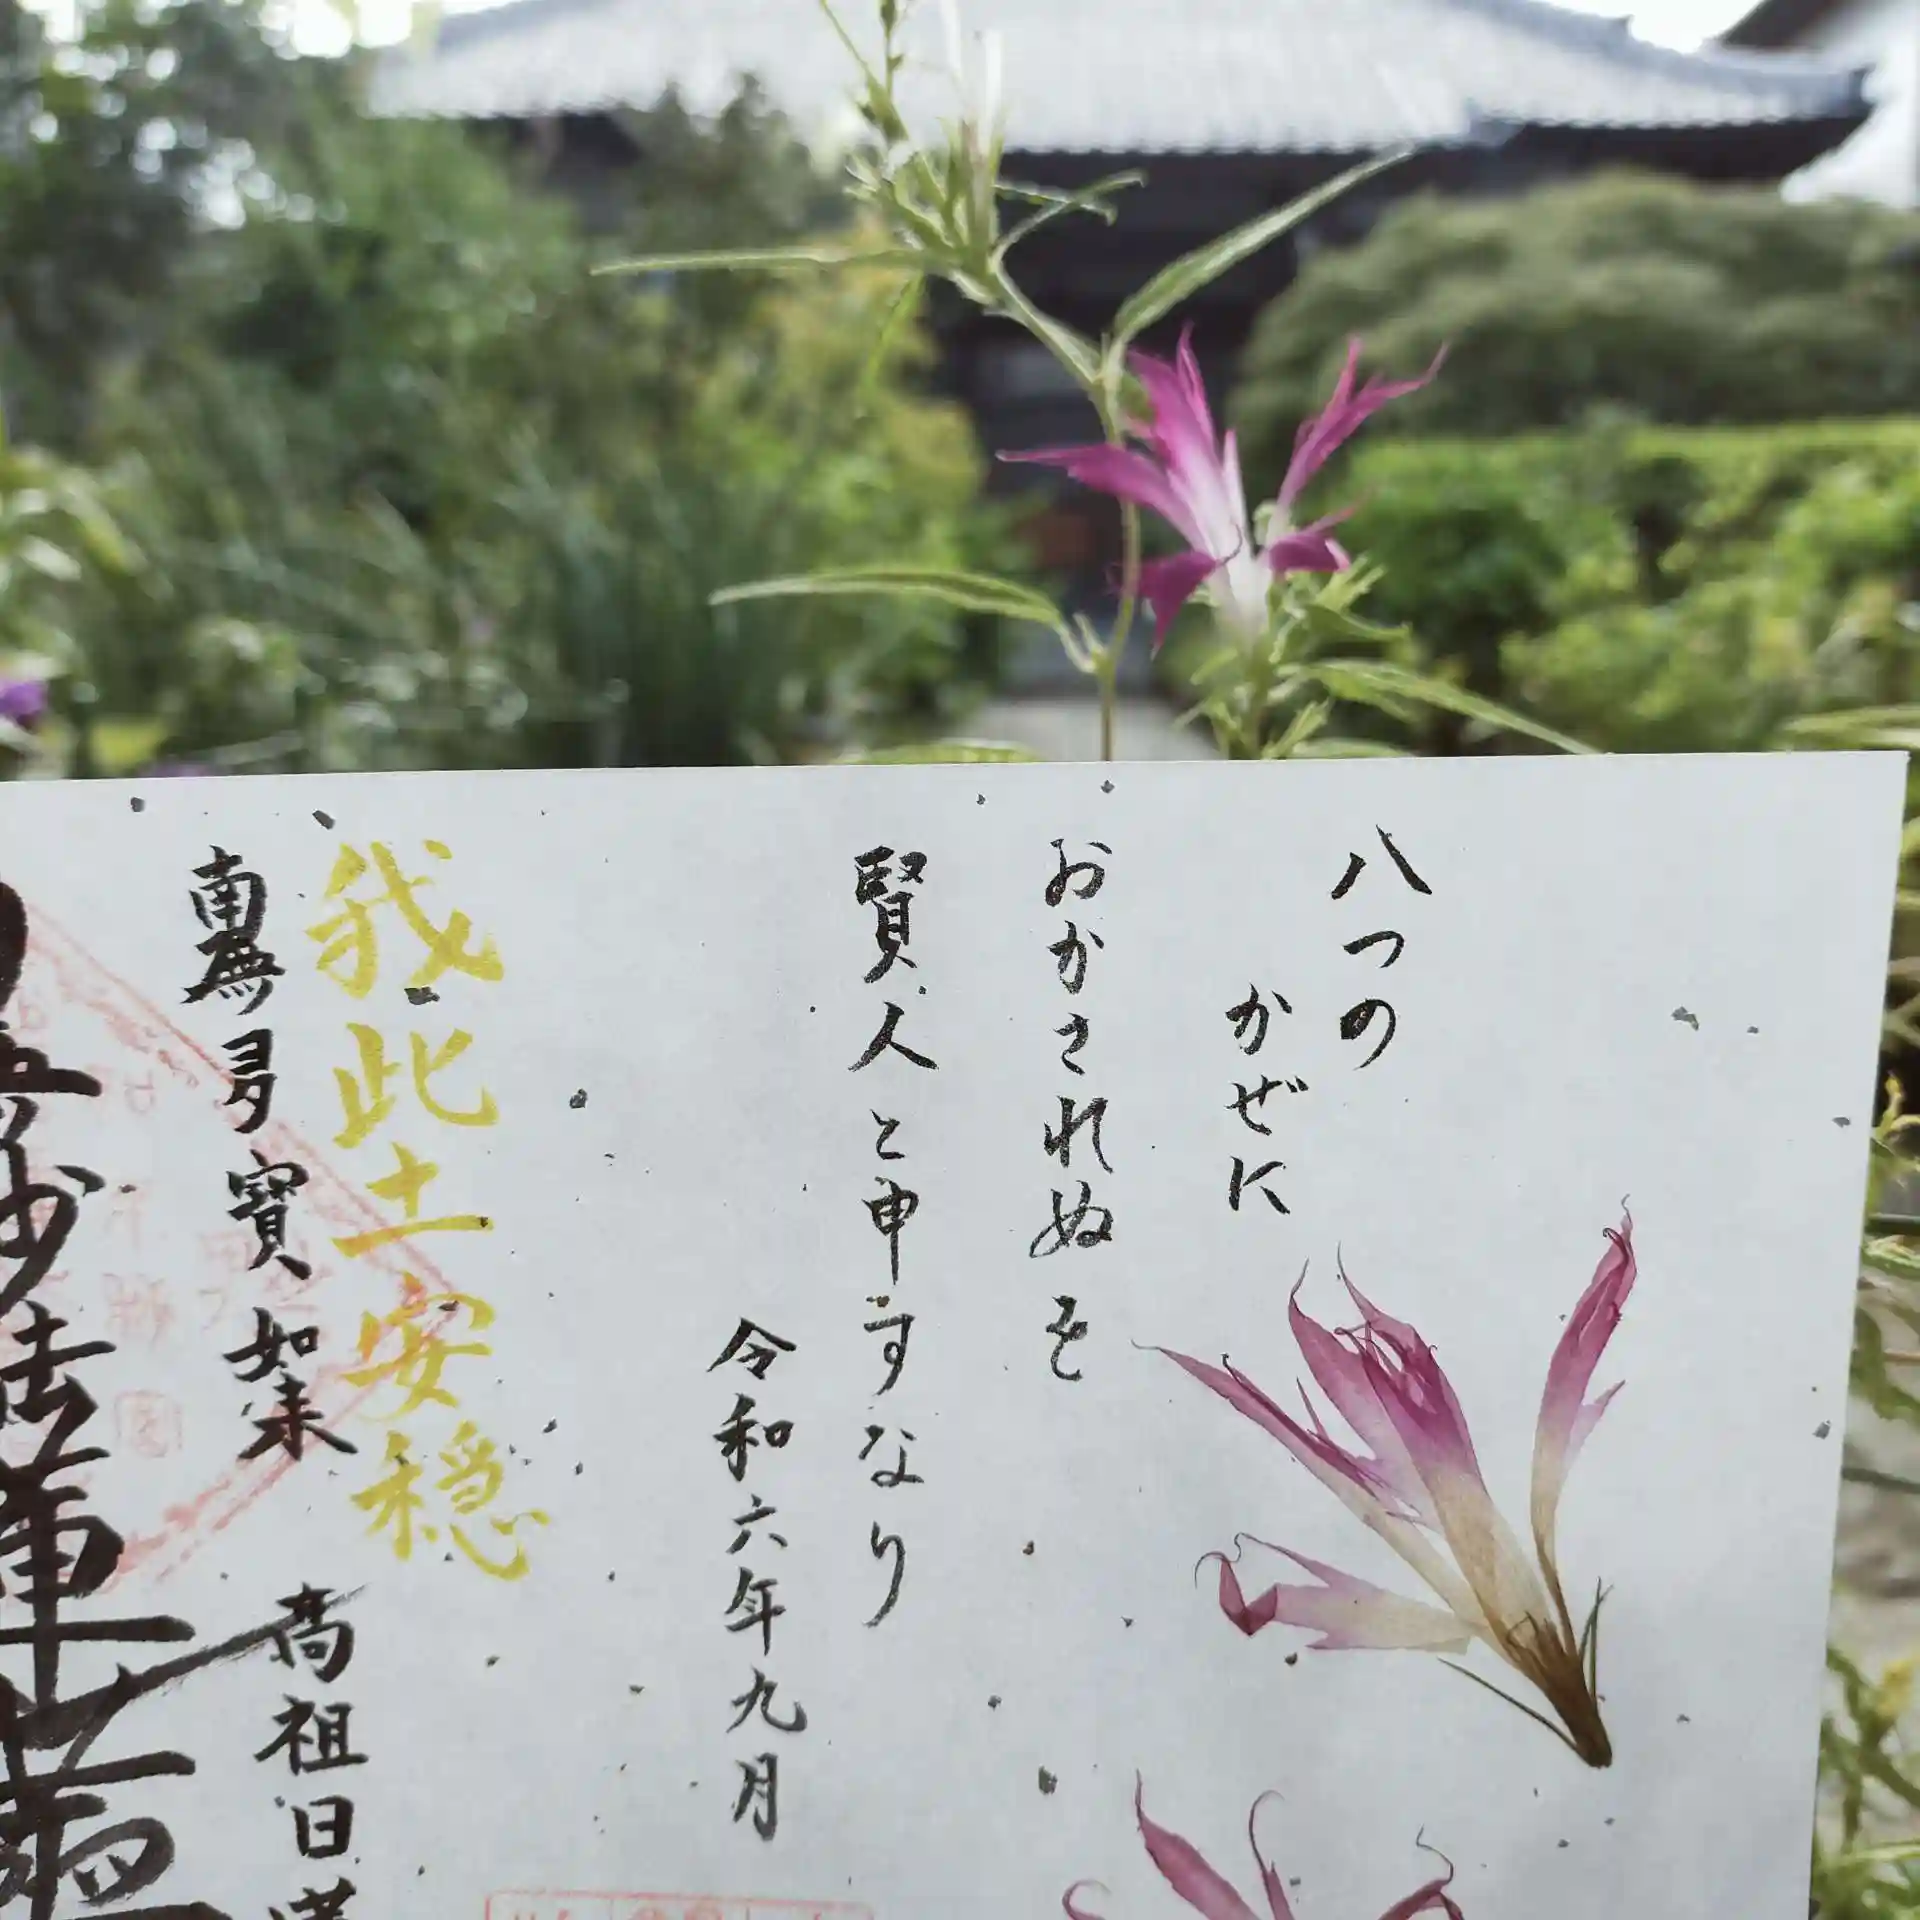 八つの
かぜに
おかされぬを
賢人と申すなり
令和六年九月
我此土安穏
南無多寳如来
高祖日蓮
妙法蓮華